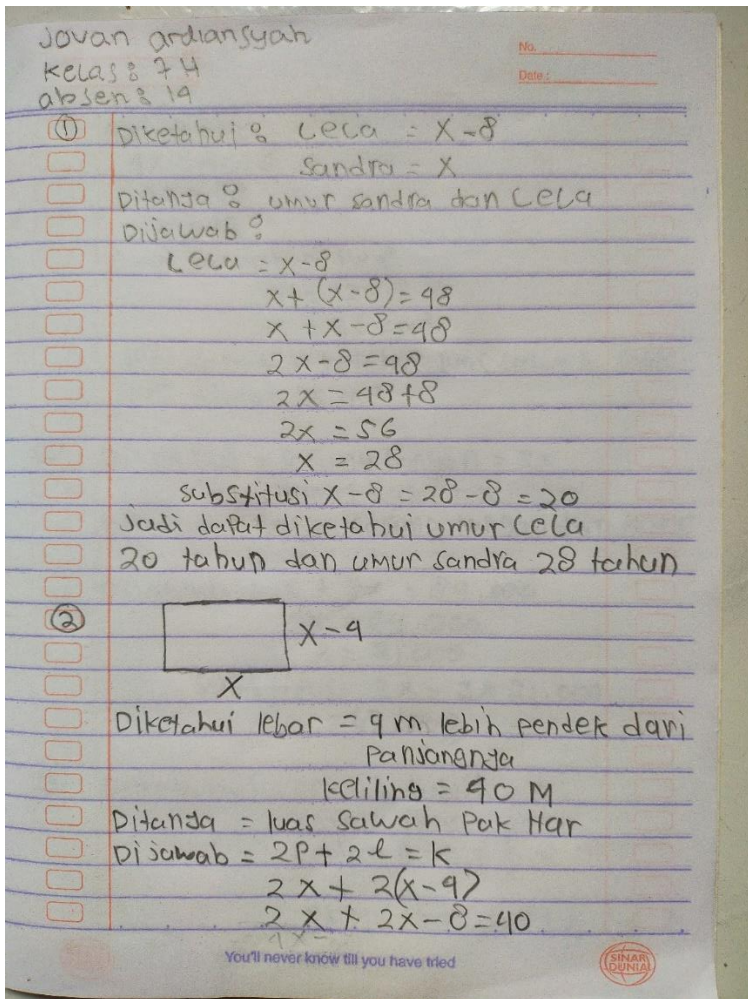 Jovan ardiansyah
No.
kelas: 7H
Date :
absen: 14
① Diketahui: Lela = x-8
Sandra = x
Ditanya: umur sandra dan Lela
Dijawab:
Lela = x-8
x + (x-8) = 48
x + x - 8 = 48
2x - 8 = 48
2x = 48+8
2x = 56
x = 28
Substitusi x-8 = 28-8 = 20
Jadi dapat diketahui umur Lela
20 tahun dan umur sandra 28 tahun
② x-4
x
Diketahui lebar = 4 m lebih pendek dari
panjangnya
keliling = 40 M
Ditanya = luas sawah Pak Har
Dijawab = 2P + 2l = k
2x + 2(x-4)
2x + 2x - 8 = 40
You'll never know till you have tried
SINAR DUNIA